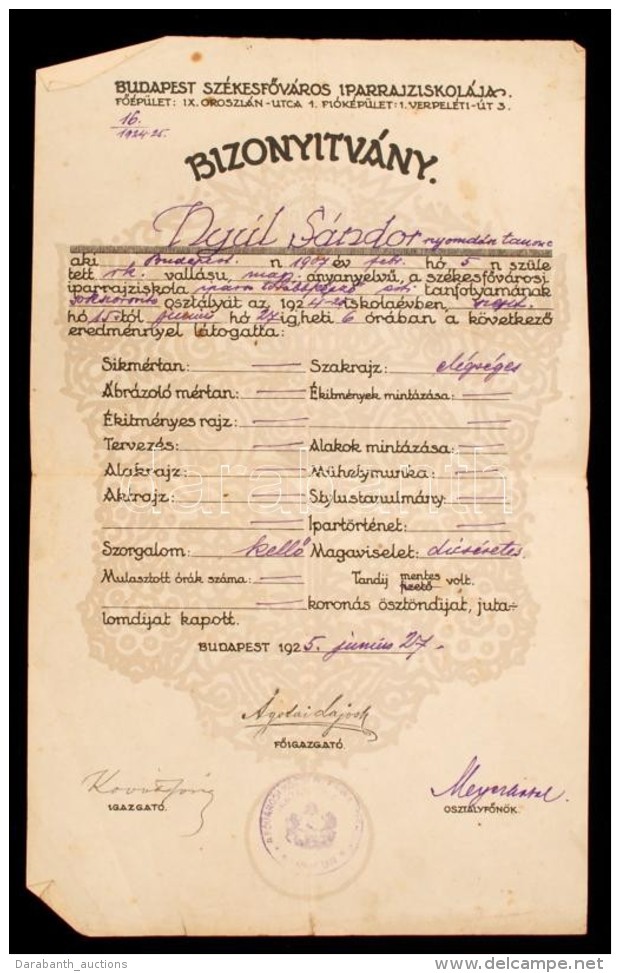 BUDAPEST SZÉKESFŐVÁROS IPARRAJZISKOLÁJA.
FŐÉPÜLET: IX. OROSZLÁN-UTCA 1. FIÓKÉPÜLET: I. VERPELÉTI-ÚT 3.
16.
1924-25.
BIZONYITVÁNY.
Nyúl Sándor nyomdász tanonc
aki Budapest n 1907 év febr. hó 5 n szüle
tett rk. vallásu, mag. anyanyelvű, a székesfővárosi
iparrajziskola tanfolyamának
osztályát az, 1924- iskolaévben, szept.
hó 15 től junius hó 27 ig, heti 6 órában a következő
eredménnyel látogatta:
Sikmértan: — Szakrajz: elégséges
Ábrázoló mértan: — Ékitmények mintázása: —
Ékitményes rajz: — —
Tervezés: — Alakok mintázása: —
Alakrajz: — Műhelymunka: —
Aktrajz: — Stylustanulmány: —
— Ipartörténet: —
Szorgalom: kellő Magaviselet: dicséretes.
Mulasztott órák száma: — Tandij mentes fizető volt.
— koronás ösztöndijat, juta-
lomdijat kapott.
BUDAPEST 1925. junius 27.
Ágotai Lajos
FŐIGAZGATÓ.
IGAZGATÓ.
OSZTÁLYFŐNÖK.
darabanth
Darabanth_auctions
delcampe.net